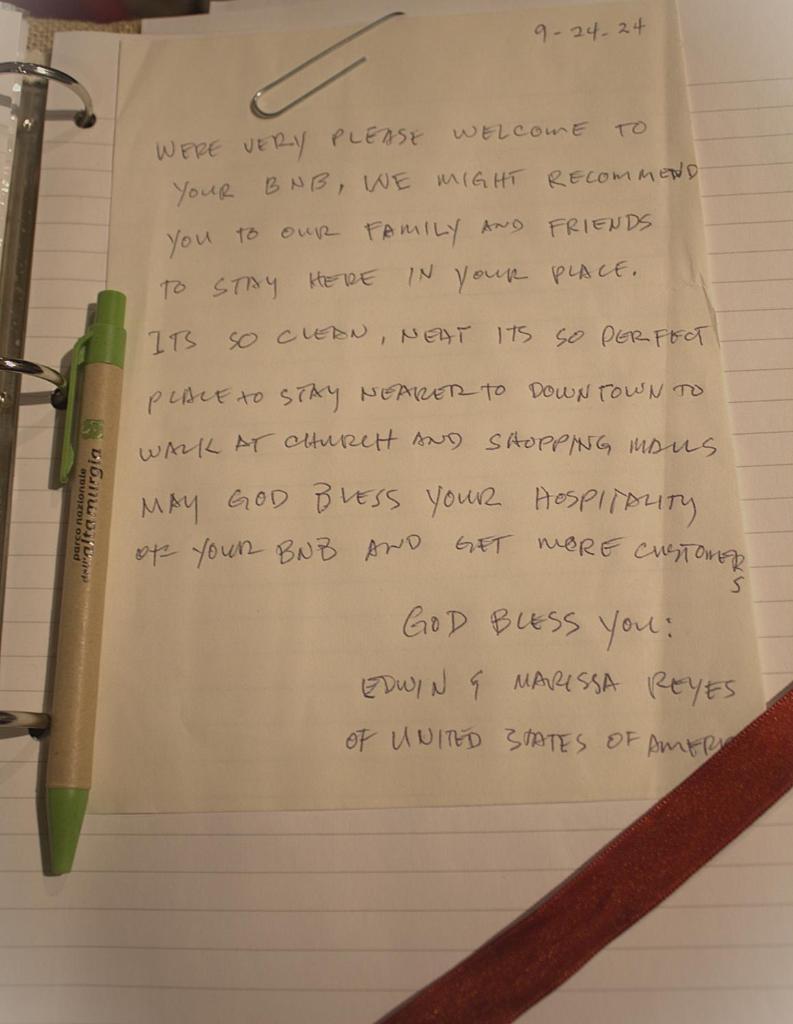 9-24-24
WERE VERY PLEASE WELCOME TO
YOUR BNB, WE MIGHT RECOMMEND
YOU TO OUR FAMILY AND FRIENDS
TO STAY HERE IN YOUR PLACE.
ITS SO CLEAN, NEAT ITS SO PERFECT
PLACE TO STAY NEARER TO DOWNTOWN TO
WALK AT CHURCH AND SHOPPING MALLS
MAY GOD BLESS YOUR HOSPITALITY
OF YOUR BNB AND GET MORE CUSTOMERS
GOD BLESS YOU:
EDWIN & MARISSA REYES
OF UNITED STATES OF AMERI
parco nazionale